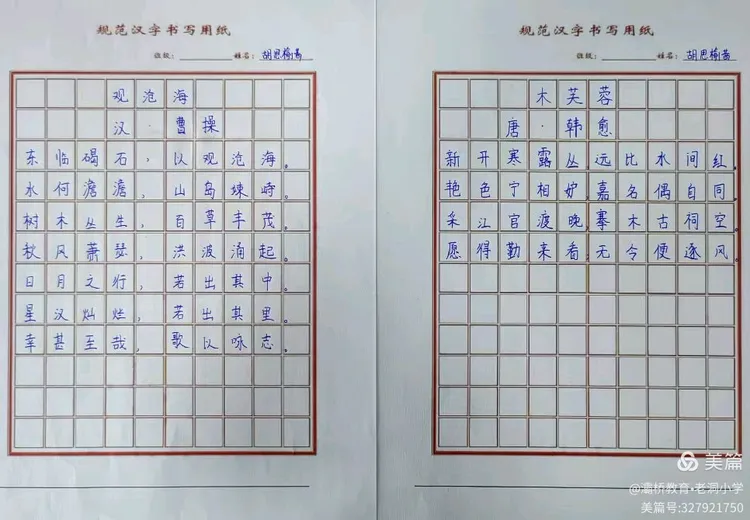 规范汉字书写用纸
班级： 姓名：胡思榆
观沧海
汉·曹操
东临碣石，以观沧海。
水何澹澹，山岛竦峙。
树木丛生，百草丰茂。
秋风萧瑟，洪波涌起。
日月之行，若出其中。
星汉灿烂，若出其里。
幸甚至哉，歌以咏志。
规范汉字书写用纸
班级： 姓名：胡思榆
木芙蓉
唐·韩愈
新开寒露丛远比水间红。
艳色宁相妒嘉名偶自同。
采江官渡晚搴木古祠空。
愿得勤来看无令便逐风。
美篇
@灞桥教育·老洞小学
美篇号:327921750